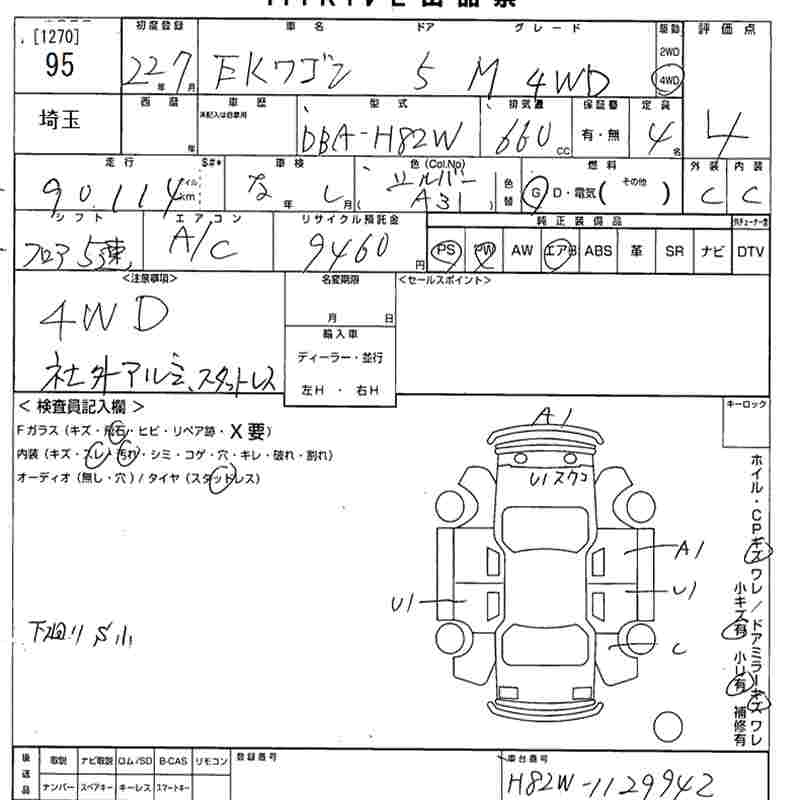 [1270]
95
埼玉
初度登録 車名 ドア グレード 駆動 評価点
22年 7月 EKワゴン 5 M 4WD 2WD 4WD
西暦 車歴 型式 排気量 保証書 定員
未記入は自家用
年 DBA-H82W 660 CC 有・無 4名 4
走行 S#* 車検 色(Col.No) 燃料 外装 内装
90,114 マイル km な年し月 シルバー A31 色替 G D・電気( その他 ) C C
シフト エアコン リサイクル預託金 純正装備品
フロア5速 A/C 9460円 PS PW AW エアB ABS 革 SR ナビ DTV
<注意事項> 名変期限 <セールスポイント>
4WD
月 日
輸入車
ディーラー・並行
社外アルミ、スタットレス
左H ・ 右H
< 検査員記入欄 > キーロック
Fガラス (キズ・飛石・ヒビ・リペア跡・X要)
内装 (キズ・スレ・汚れ・シミ・コゲ・穴・キレ・破れ・割れ)
オーディオ (無し・穴) / タイヤ (スタッドレス)
A1
U1スクコ
A1
U1
U1
C
下廻りS小
ホイル・CPキズワレ/ドアミラーキズワレ
小キズ有 小U有 補修有
後送品 取説 ナビ取説 ロム/SD B-CAS リモコン 登録番号 車台番号
ナンバー スペアキー キーレス スマートキー H82W-1129942